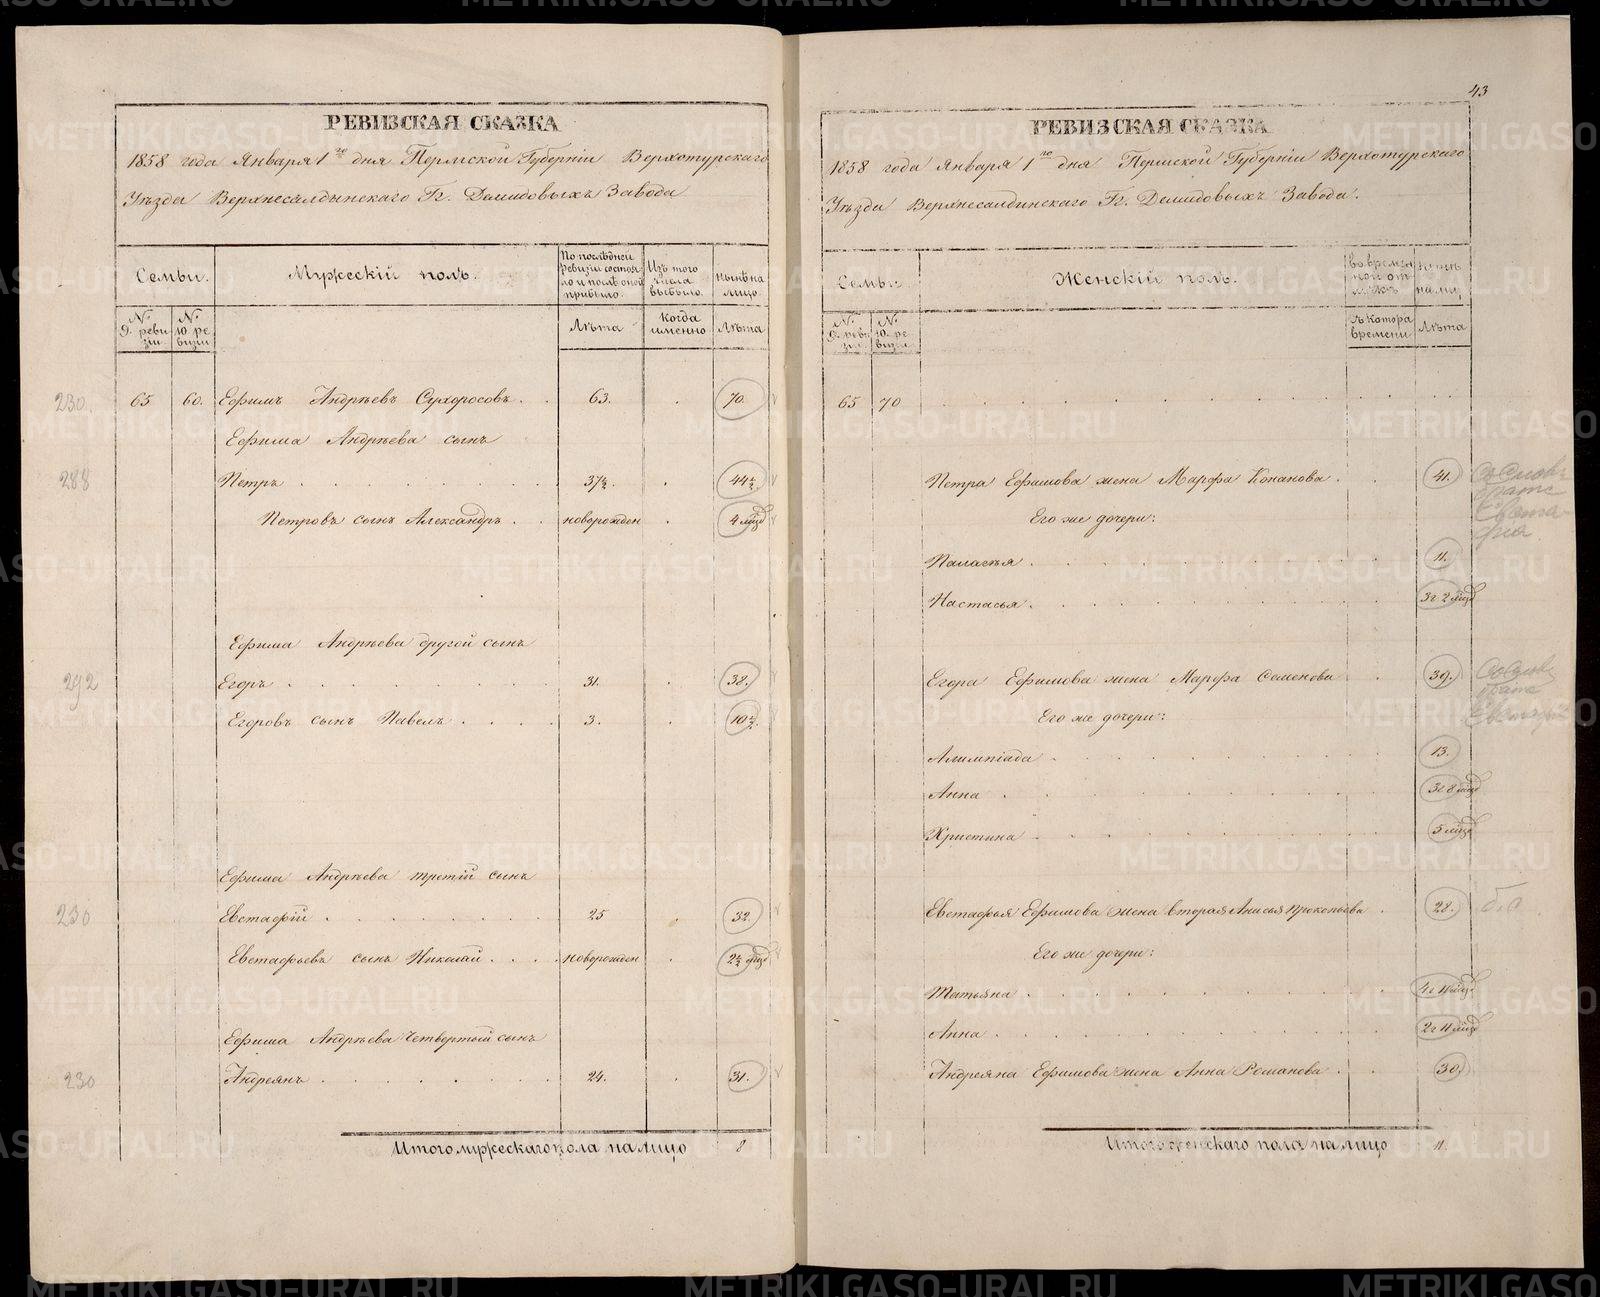 43
РЕВИЗСКАЯ СКАЗКА
1858 года Января 1го дня Пермской Губерніи Верхотурскаго
Уѣзда Верхнесалдынскаго Гг. Демидовыхъ Завода
Семьи.
Мужескій полъ.
По послѣдней ревизіи состояло и послѣ оной прибыло.
Изъ того числа выбыло.
Нынѣ на лицо.
№ 9. ревизіи
№ 10 ревизіи
Лѣта
Когда именно
Лѣта
230. 65 60. Ефимъ Андрѣевъ Сухоросовъ . . 63. . 70.
Ефима Андрѣева сынъ
288 Петръ 37½. . 44½.
Петровъ сынъ Александръ . . новорожден . 4 мѣд
Ефима Андрѣева другой сынъ
292 Егоръ 31. . 38.
Егоровъ сынъ Павелъ 3. . 10½.
Ефима Андрѣева третій сынъ
230 Евстафій 25 . 32.
Евстафьевъ сынъ Николай новорожден . 2½ мѣд
Ефима Андрѣева Четвертый сынъ
230 Андреянъ 24. . 31.
Итого мужескаго пола на лицо 8
РЕВИЗСКАЯ СКАЗКА
1858 года Января 1го дня Пермской Губерніи Верхотурскаго
Уѣзда Верхнесалдинскаго Гг. Демидовыхъ Завода.
Семьи.
Женскій полъ.
во времен ной от
на ли
№ 9. ревизіи
№ 10. ревизіи
Съ котора времени
Лѣта
65 70
Петра Ефимова жена Марфа Конанова . . 41.
Его же дочери:
Палагѣя 11.
Настасья 3г 2 мѣд
Егора Ефимова жена Марфа Семенова . . 39.
Его же дочери:
Алимпіада 13.
Анна 3г 8 мѣд
Христина 5 мѣд
Евстафья Ефимова жена вторая Анисья Прокопьева . 28.
Его же дочери:
Татьяна 4г 11 мѣд
Анна 2г 11 мѣд
Андреяна Ефимова жена Анна Романова . . 30.
Итого женскаго пола на лицо 11.
METRIKI.GASO-URAL.RU